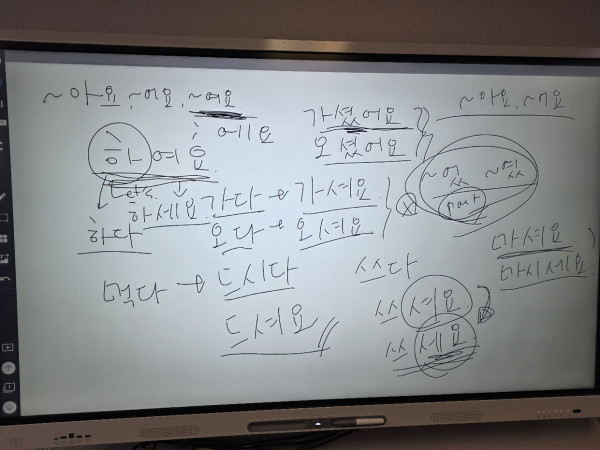 ~아요, ~어요, ~여요
에요
하여요
Let's
하세요
하다
가셨어요
오셨어요
가다 → 가셔요
오다 → 오셔요
먹다 → 드시다
드셔요
쓰다
쓰셔요
쓰세요
~아요, ~어요
~었 ~였
past
마셔요
마시세요